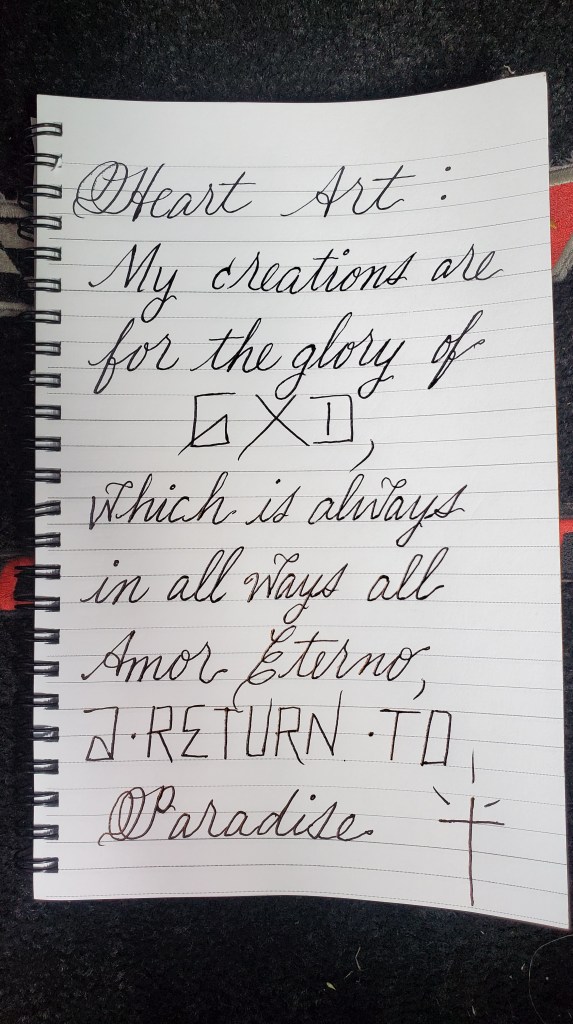 Heart Art :
My creations are
for the glory of
GXD,
which is always
in all ways all
Amor Eterno,
A·RETURN·TO
Paradise